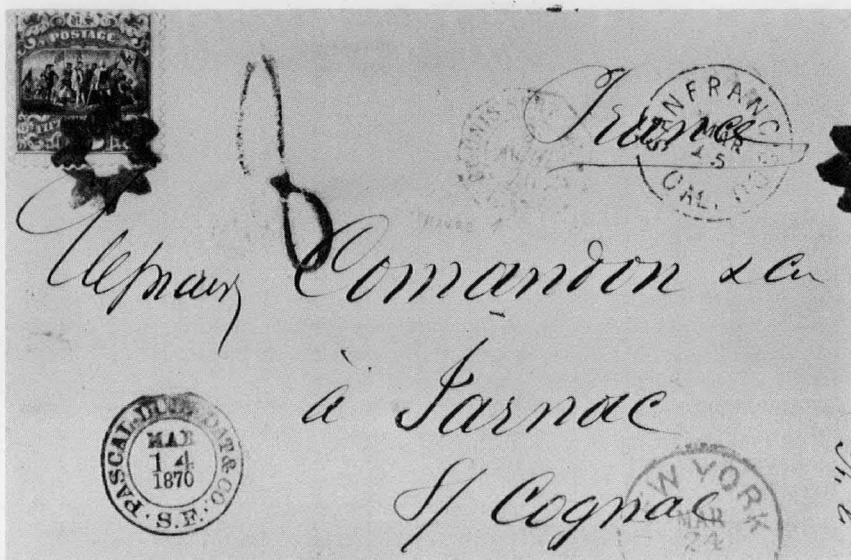 U.S. POSTAGE
France
SAN FRANCISCO
MAR
15
CAL.
Comandon & Cie
à Jarnac
S/ Cognac
PASCAL, & CO.
MAR
14
1870
S.F.
NEW YORK
MAR
24